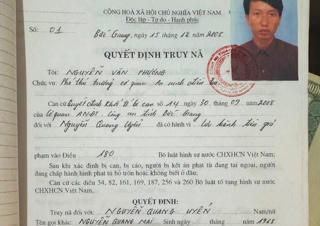 CỘNG HOÀ XÃ HỘI CHỦ NGHĨA VIỆT NAM
Độc lập - Tự do - Hạnh phúc
Số: 01
Bắc Giang, ngày 15 tháng 12 năm 2005
QUYẾT ĐỊNH TRUY NÃ
Tôi: NGUYỄN VĂN PHƯƠNG
Chức vụ: Phó thủ trưởng cơ quan An ninh điều tra
Căn cứ Quyết định Khởi tố bị can số 14, ngày 30 tháng 09 năm 2005
của cơ quan ANĐT, công an tỉnh Bắc Giang
đối với Nguyễn Quang Uyên đã có hành vi: Lưu hành tiền giả
phạm vào Điều 180 Bộ luật hình sự nước CHXHCN Việt Nam;
Sau khi xác định bị can, bị cáo, người bị kết án phạt tù đang tại ngoại, người
đang chấp hành hình phạt tù bỏ trốn hoặc không biết ở đâu;
Căn cứ các điều 34, 82, 161, 169, 187, 256 và 260 Bộ luật tố tụng hình sự nước
CHXHCN Việt Nam,
QUYẾT ĐỊNH:
Truy nã đối với: NGUYỄN QUANG UYÊN Nam/nữ
Tên gọi khác: NGUYỄN QUANG MAI Sinh ngày tháng năm 1968